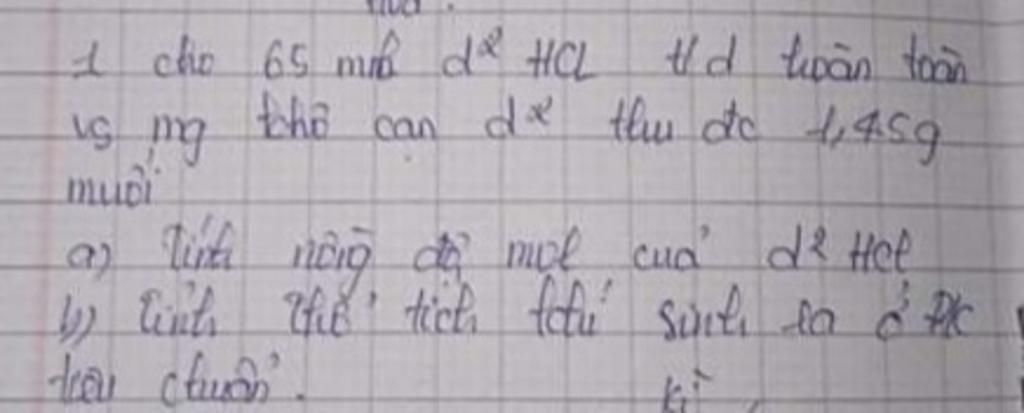 1 cho 65 ml d² HCL t/d hoàn toàn
vs mg thô cạn d² thu đc 1,45g
muối
a) Tính nồng độ mol của d² HCl
b) Tính thể tích khí sinh ra ở ĐK
tiêu chuẩn.